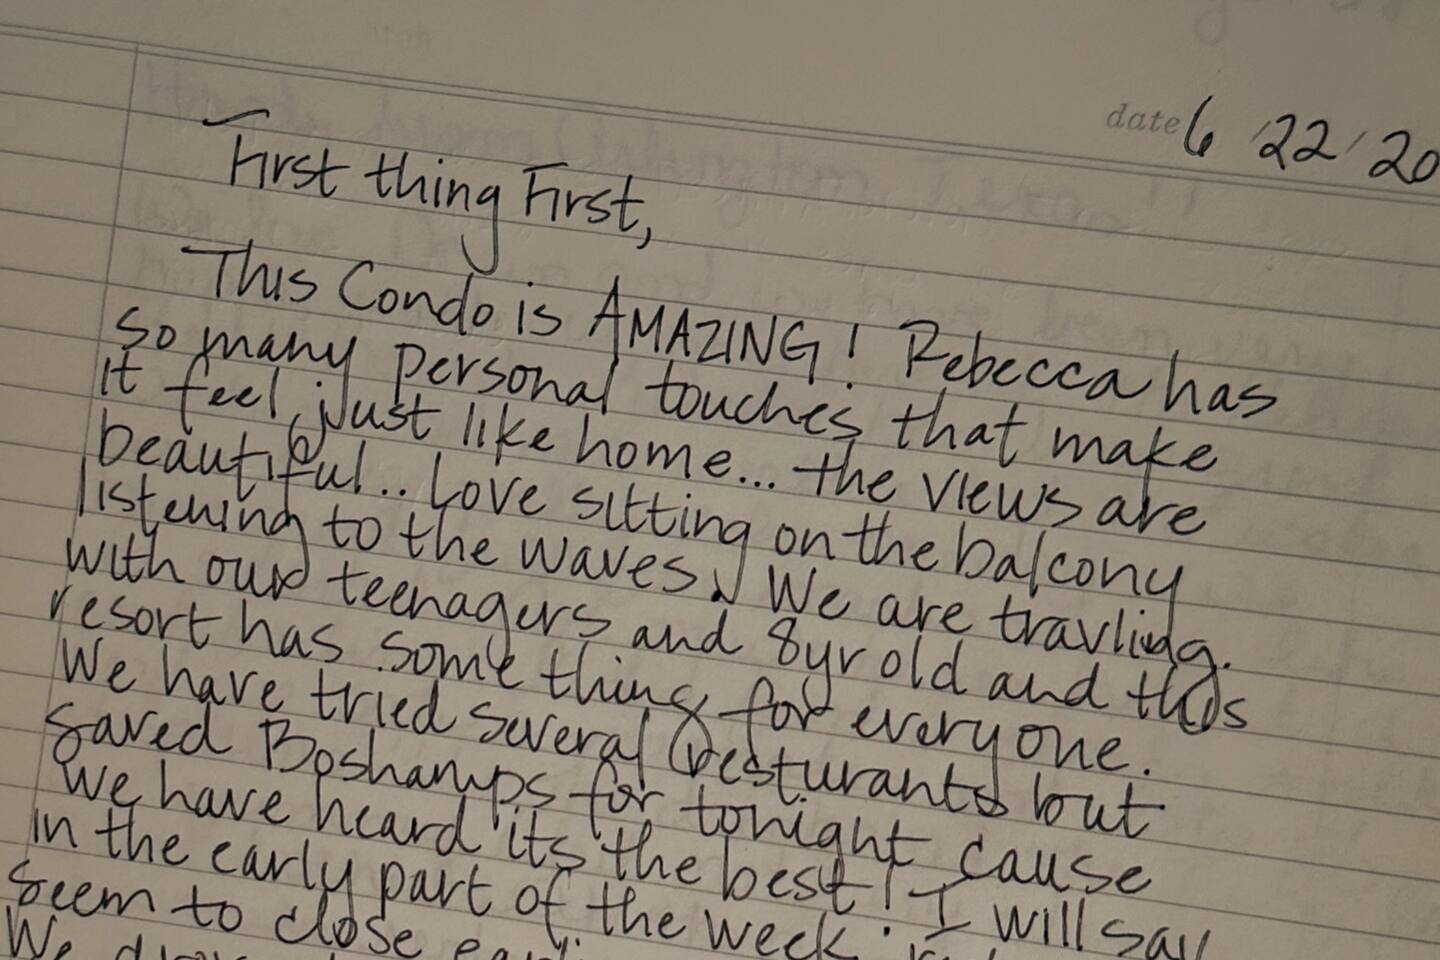 date 6/22/20
First thing First,
This Condo is AMAZING! Rebecca has
so many personal touches that make
it feel just like home... the views are
beautiful.. Love sitting on the balcony
listening to the waves. We are travling.
with our teenagers and 8yr old and this
resort has something for everyone.
We have tried several resturants but
saved Boshamps for tonight cause
we have heard its the best! I will say
in the early part of the week
seem to close
We